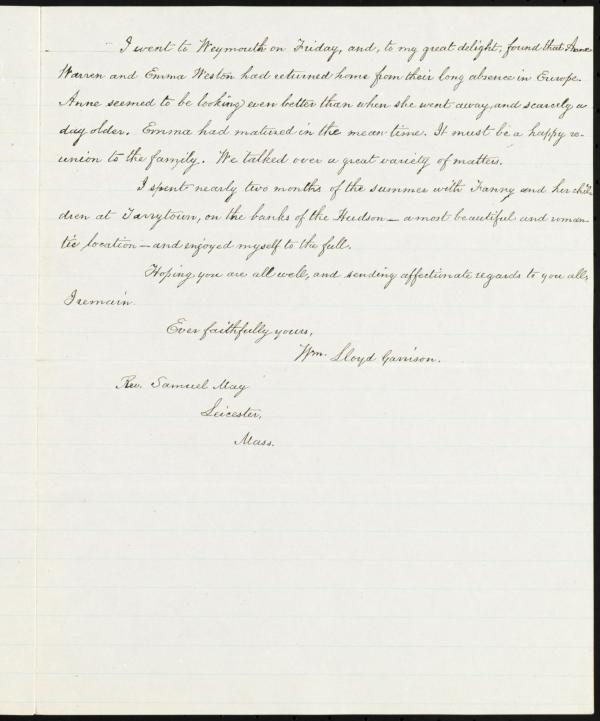 I went to Weymouth on Friday, and, to my great delight, found that Anne
Warren and Emma Weston had returned home from their long absence in Europe.
Anne seemed to be looking even better than when she went away, and scarcely a
day older. Emma had matured in the mean time. It must be a happy re-
union to the family. We talked over a great variety of matters.
I spent nearly two months of the summer with Fanny and her chil-
dren at Tarrytown, on the banks of the Hudson—a most beautiful and roman-
tic location—and enjoyed myself to the full.
Hoping you are all well, and sending affectionate regards to you all,
I remain
Ever faithfully yours,
Wm. Lloyd Garrison.
Rev. Samuel May
Leicester,
Mass.